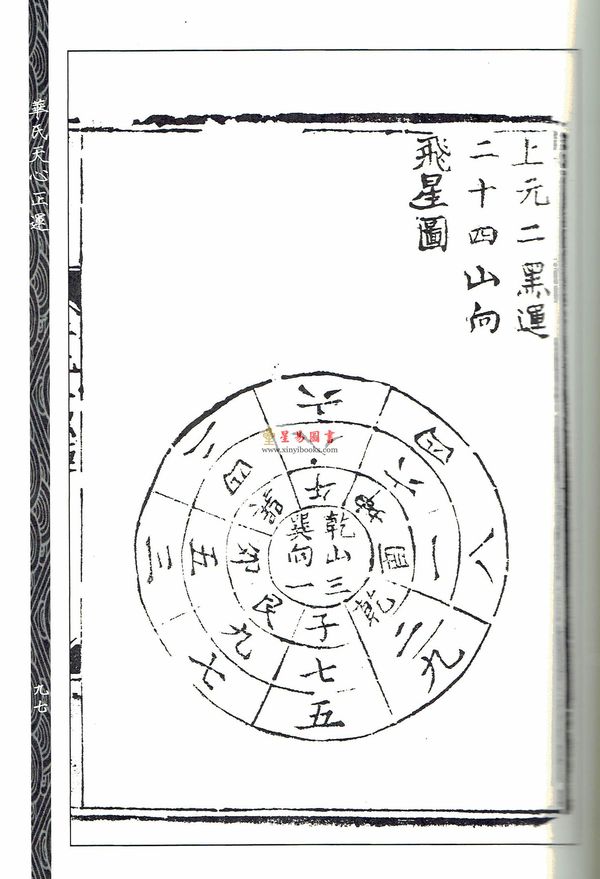 上元二黑運
二十四山向
飛星圖
乾山三
巽向一
子
乾
卯
六
四
八
一
二
九
七
五
九
七
五
三
四
六
八
星易圖書
www.xinyibooks.com
華氏天心正運
九七